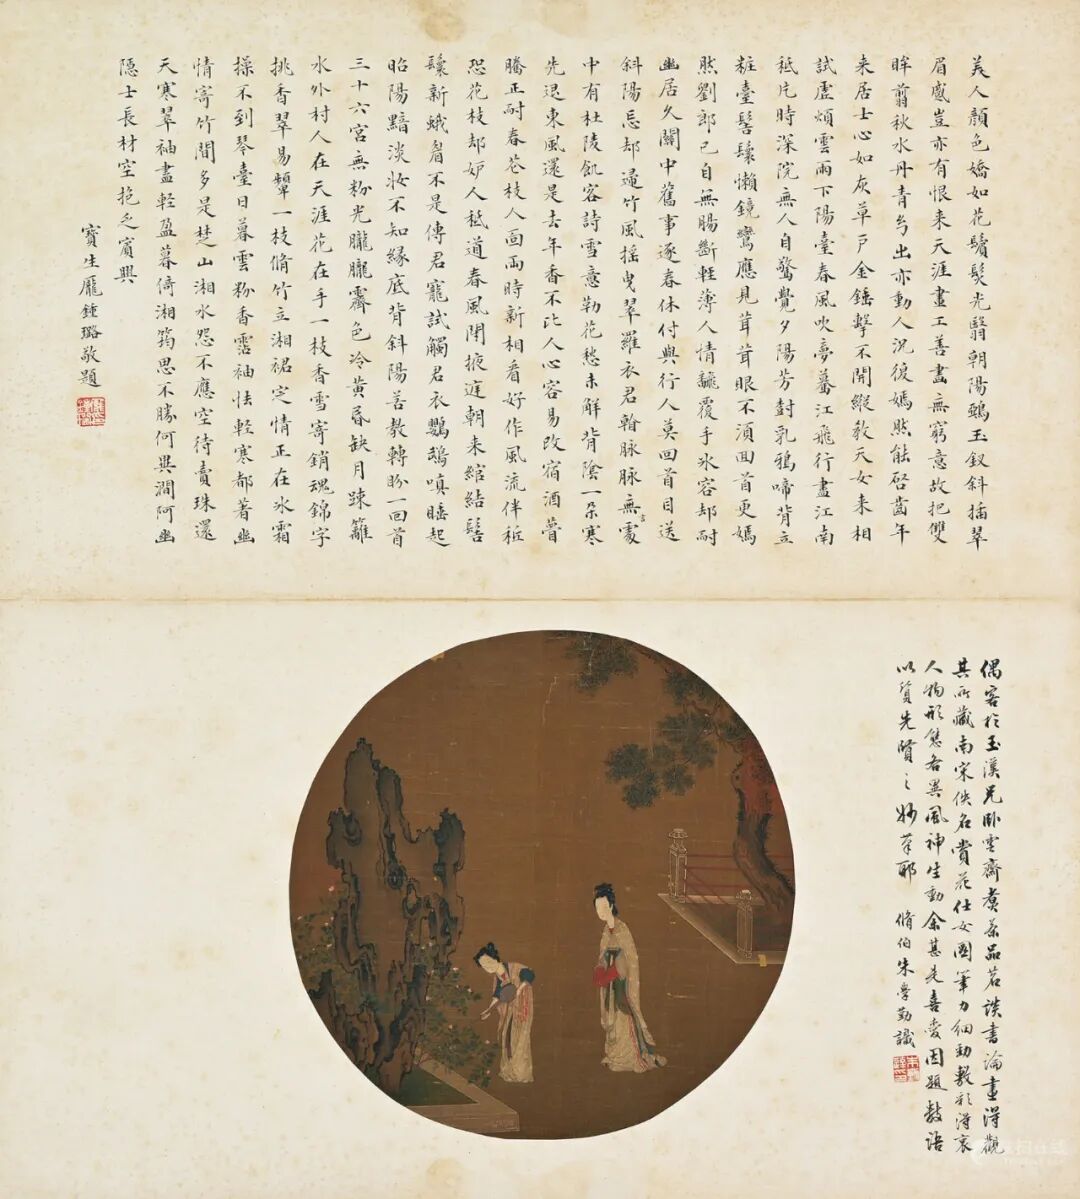 美人顏色嬌如花鬢髮光翳朝陽鵶玉釵斜插翠
眉蹙豈亦有恨来天涯畫工善畫無窮意故把雙
眸翦秋水丹青幻出亦動人況復嫣然能啓齒年
来居士心如灰草戸金鎚擊不開縱教天女来相
試虛煩雲雨下陽臺春風吹夢蓦江飛行盡江南
秪片時深院無人自驚覺夕陽芳樹乳鴉啼背立
粧臺髻鬟懶鏡鸞應見茸茸眼不須回首更嫣
然劉郎已自無腸斷輕薄人情飜覆手氷容却耐
幽居久關中舊事逐春休付與行人莫回首目送
斜陽忘却還竹風搖曳翠羅衣君輪脉脉無言處
中有杜陵飢客詩雪意勒花愁未解背陰一朶寒
先退東風還是去年香不比人心容易改宿酒瞢
騰正耐春苍枝人面兩時新相看好作風流伴秖
恐花枝却妒人秪道春風閉掖庭朝来綰結髻
鬟新蛾眉不是傳君寵試觸君衣鸚鵡嗔睡起
昭陽黯淡妝不知緣底背斜陽善教轉盼一回首
三十六宮無粉光朧朧霽色冷黄昏缺月踈籬
水外村人在天涯花在手一枝香雪寄銷魂錦字
挑香翠易顰一枝脩竹立湘裙定情正在氷霜
操不到琴臺日暮雲粉香霑袖怯輕寒都著幽
情寄竹間多是楚山湘水怨不應空待賣珠還
天寒翠袖盡輕盈暮倚湘筠思不勝何異澗阿幽
隠士長材空抱乏賓興
寳生龐鍾璐敬題
偶客於玉溪兄卧雲齋煮茶品茗談書論畫得觀
其所藏南宋佚名賞花仕女圖筆力細勁敷彩得衷
人物形態各異風神生動余甚是喜愛因題數語
以質先賢之妙筆耶
脩伯朱學勤識